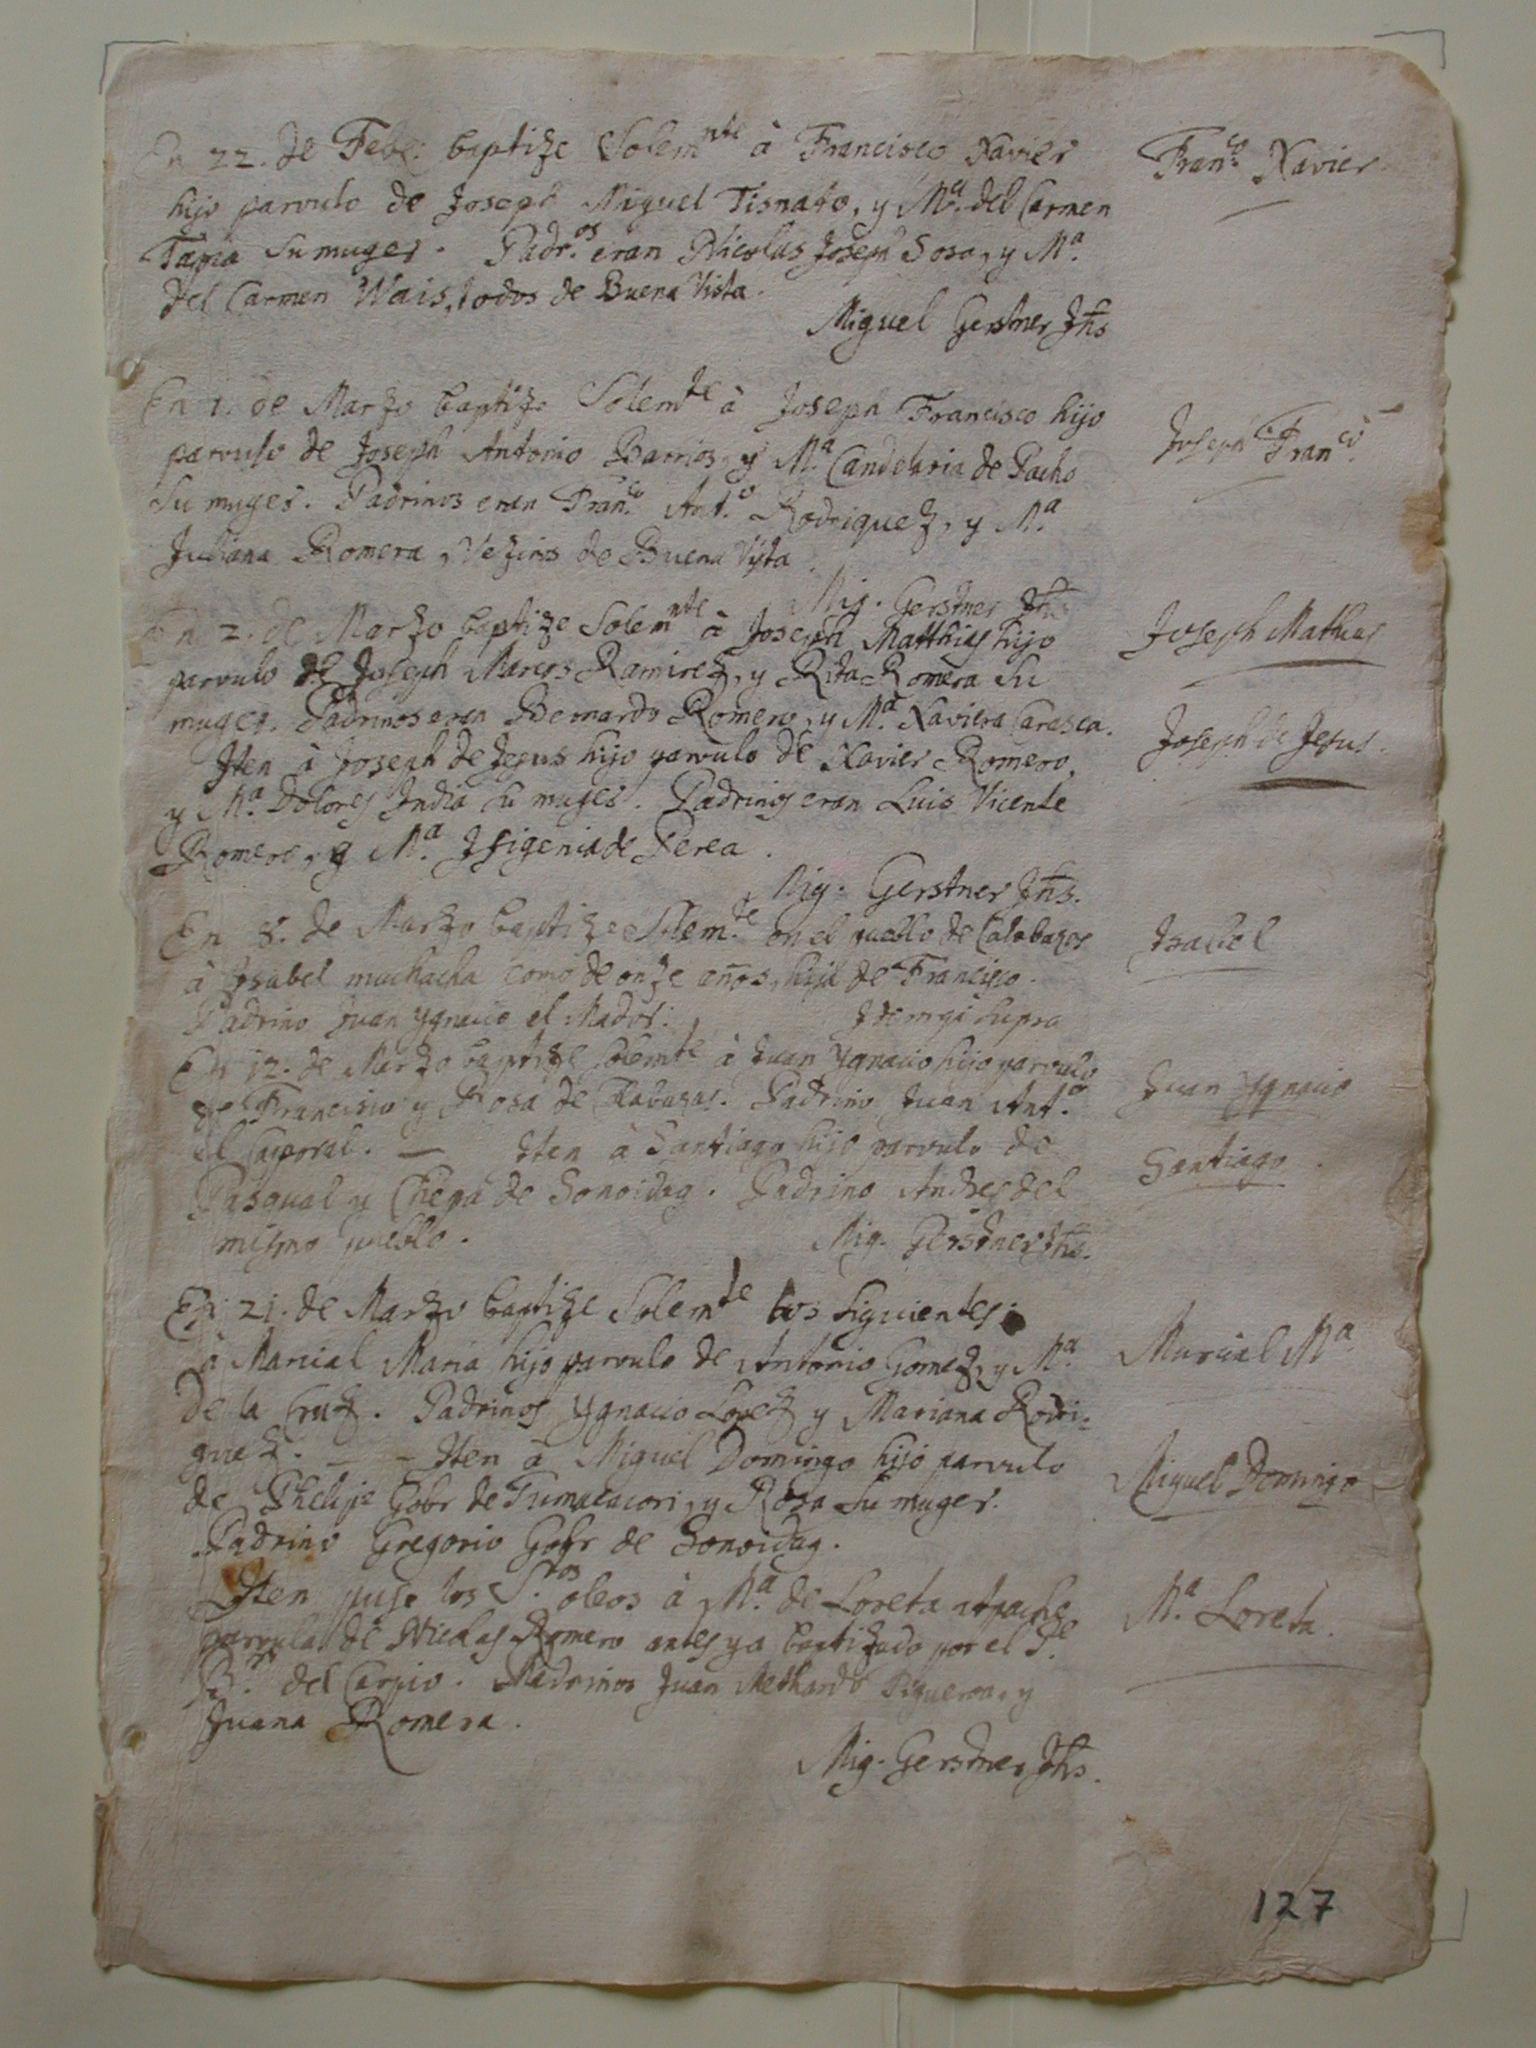 En 22. de Febr: baptize Solemnte à Francisco Xavier
Franco. Xavier
hijo parvulo de Joseph Miguel Tisnado, y Ma. del Carmen
Tapia Su muger. Padr.os eran Nicolas Joseph Sosa, y Ma.
del Carmen Wais, todos de Buena Vista.
Miguel Gerstner Jhs
En 1. de Marzo baptize Solemte à Joseph Francisco hijo
Joseph Franco.
parvulo de Joseph Antonio Barrios, y Ma. Candelaria de Pacho
Su muger. Padrinos eran Franco. Anto. Rodriguez, y Ma.
Juliana Romera, Vezinos de Buena Vista.
Mig. Gerstner Jhs
En 2. de Marzo baptize Solemnte à Joseph Matthias hijo
Joseph Mathias
parvulo de Joseph Marcos Ramirez, y Rita Romera Su
muger. Padrinos eran Bernardo Romero, y Ma. Xaviera Carasca.
Joseph de Jesus.
Iten à Joseph de Jesus hijo parvulo de Xavier Romero,
y Ma. Dolores India Su muger. Padrinos eran Luis Vicente
Romero, y Ma. Ifigenia de Perea.
Mig. Gerstner Jhs.
En 8. de Marzo baptize Solemte. en el pueblo de Calabazas
Isabel
à Isabel muchacha como de onze años, hija de Francisco.
Padrino Juan Ygnacio el Mador. Idem qi Supra
En 12. de Marzo baptize Solemte à Juan Ygnacio hijo parvulo
Juan Ygnacio
de Francisco y Rosa de Calabazas. Padrino Juan Anto.
el Caporal. — Iten à Santiago hijo parvulo de
Santiago
Pasqual y Chepa de Sonoidag. Padrino Andres del
mismo pueblo. Mig. Gerstner Jhs.
En 21. de Marzo baptize Solemte los Siguientes:
à Marcial Maria hijo parvulo de Antonio Gomez, y Ma.
Marcial Ma.
De la Cruz. Padrinos Ygnacio Lopez y Mariana Rodri-
guez. — — Iten à Miguel Domingo hijo parvulo
Miguel Domingo
de Phelipe Gobr de Tumacacori, y Rosa Su muger.
Padrino Gregorio Gobr de Sonoidag.
Iten puse los S.tos oleos à Ma. de Loreta Apache
Ma. Loreta.
parvula de Nicolas Romero antes ya baptizado por el Pe.
del Carpio. Padrinos Juan Methardo Figueroa, y
Juana Romera.
Mig. Gerstner Jhs.
127